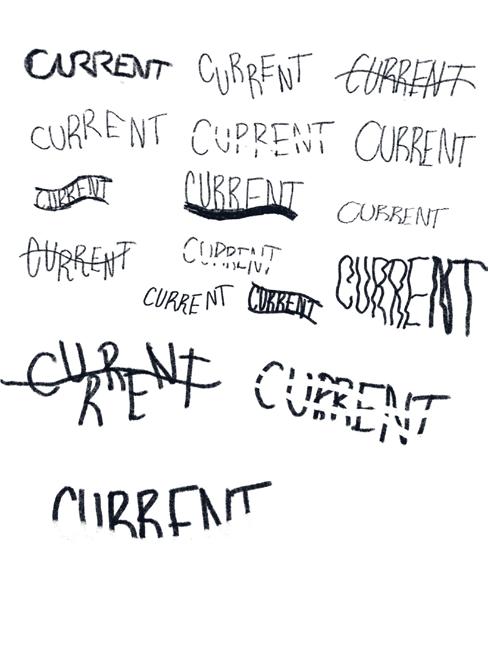 CURRENT CURRENT CURRENT
CURRENT CURRENT CURRENT
CURRENT CURRENT CURRENT
CURRENT CURRENT CURRENT
CURRENT CURRENT
CURRENT CURRENT
CURRENT